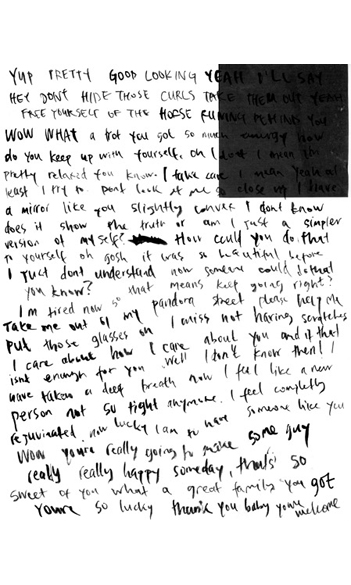 YUP PRETTY GOOD LOOKING YEAH I'LL SAY
HEY DONT HIDE THOSE CURLS TAKE THEM OUT YEAH
FREE YOURSELF OF THE HORSE RUNING BEHIND YOU
WOW WHAT a trot you got so much energy how
do you keep up with yourself. oh I dont I then im
pretty relaxed you know. I take care I mean yeah at
least I try to dont look at me so close up I have
a mirror like you slightly convex I dont know
does it show the truth or am I just a simpler
version of myself? How could you do that
to yourself oh gosh it was so beautiful before
I just dont understand how someone could do that
you know? that means keep going right?
I'm tired now so pandora street please help me
Take me out of my
put those glasses on I miss not having scratches
I care about how I care about you and if that
isnt enough for you well I don't know then! I
have taken a deep breath now I feel like a new
person not so tight anymore. I feel completly
rejuvinated. how lucky I am to have someone like you
Wow youre really going to make some guy
really really happy someday, thats so
sweet of you what a great family you got
Youre so lucky thank you baby youre welcome